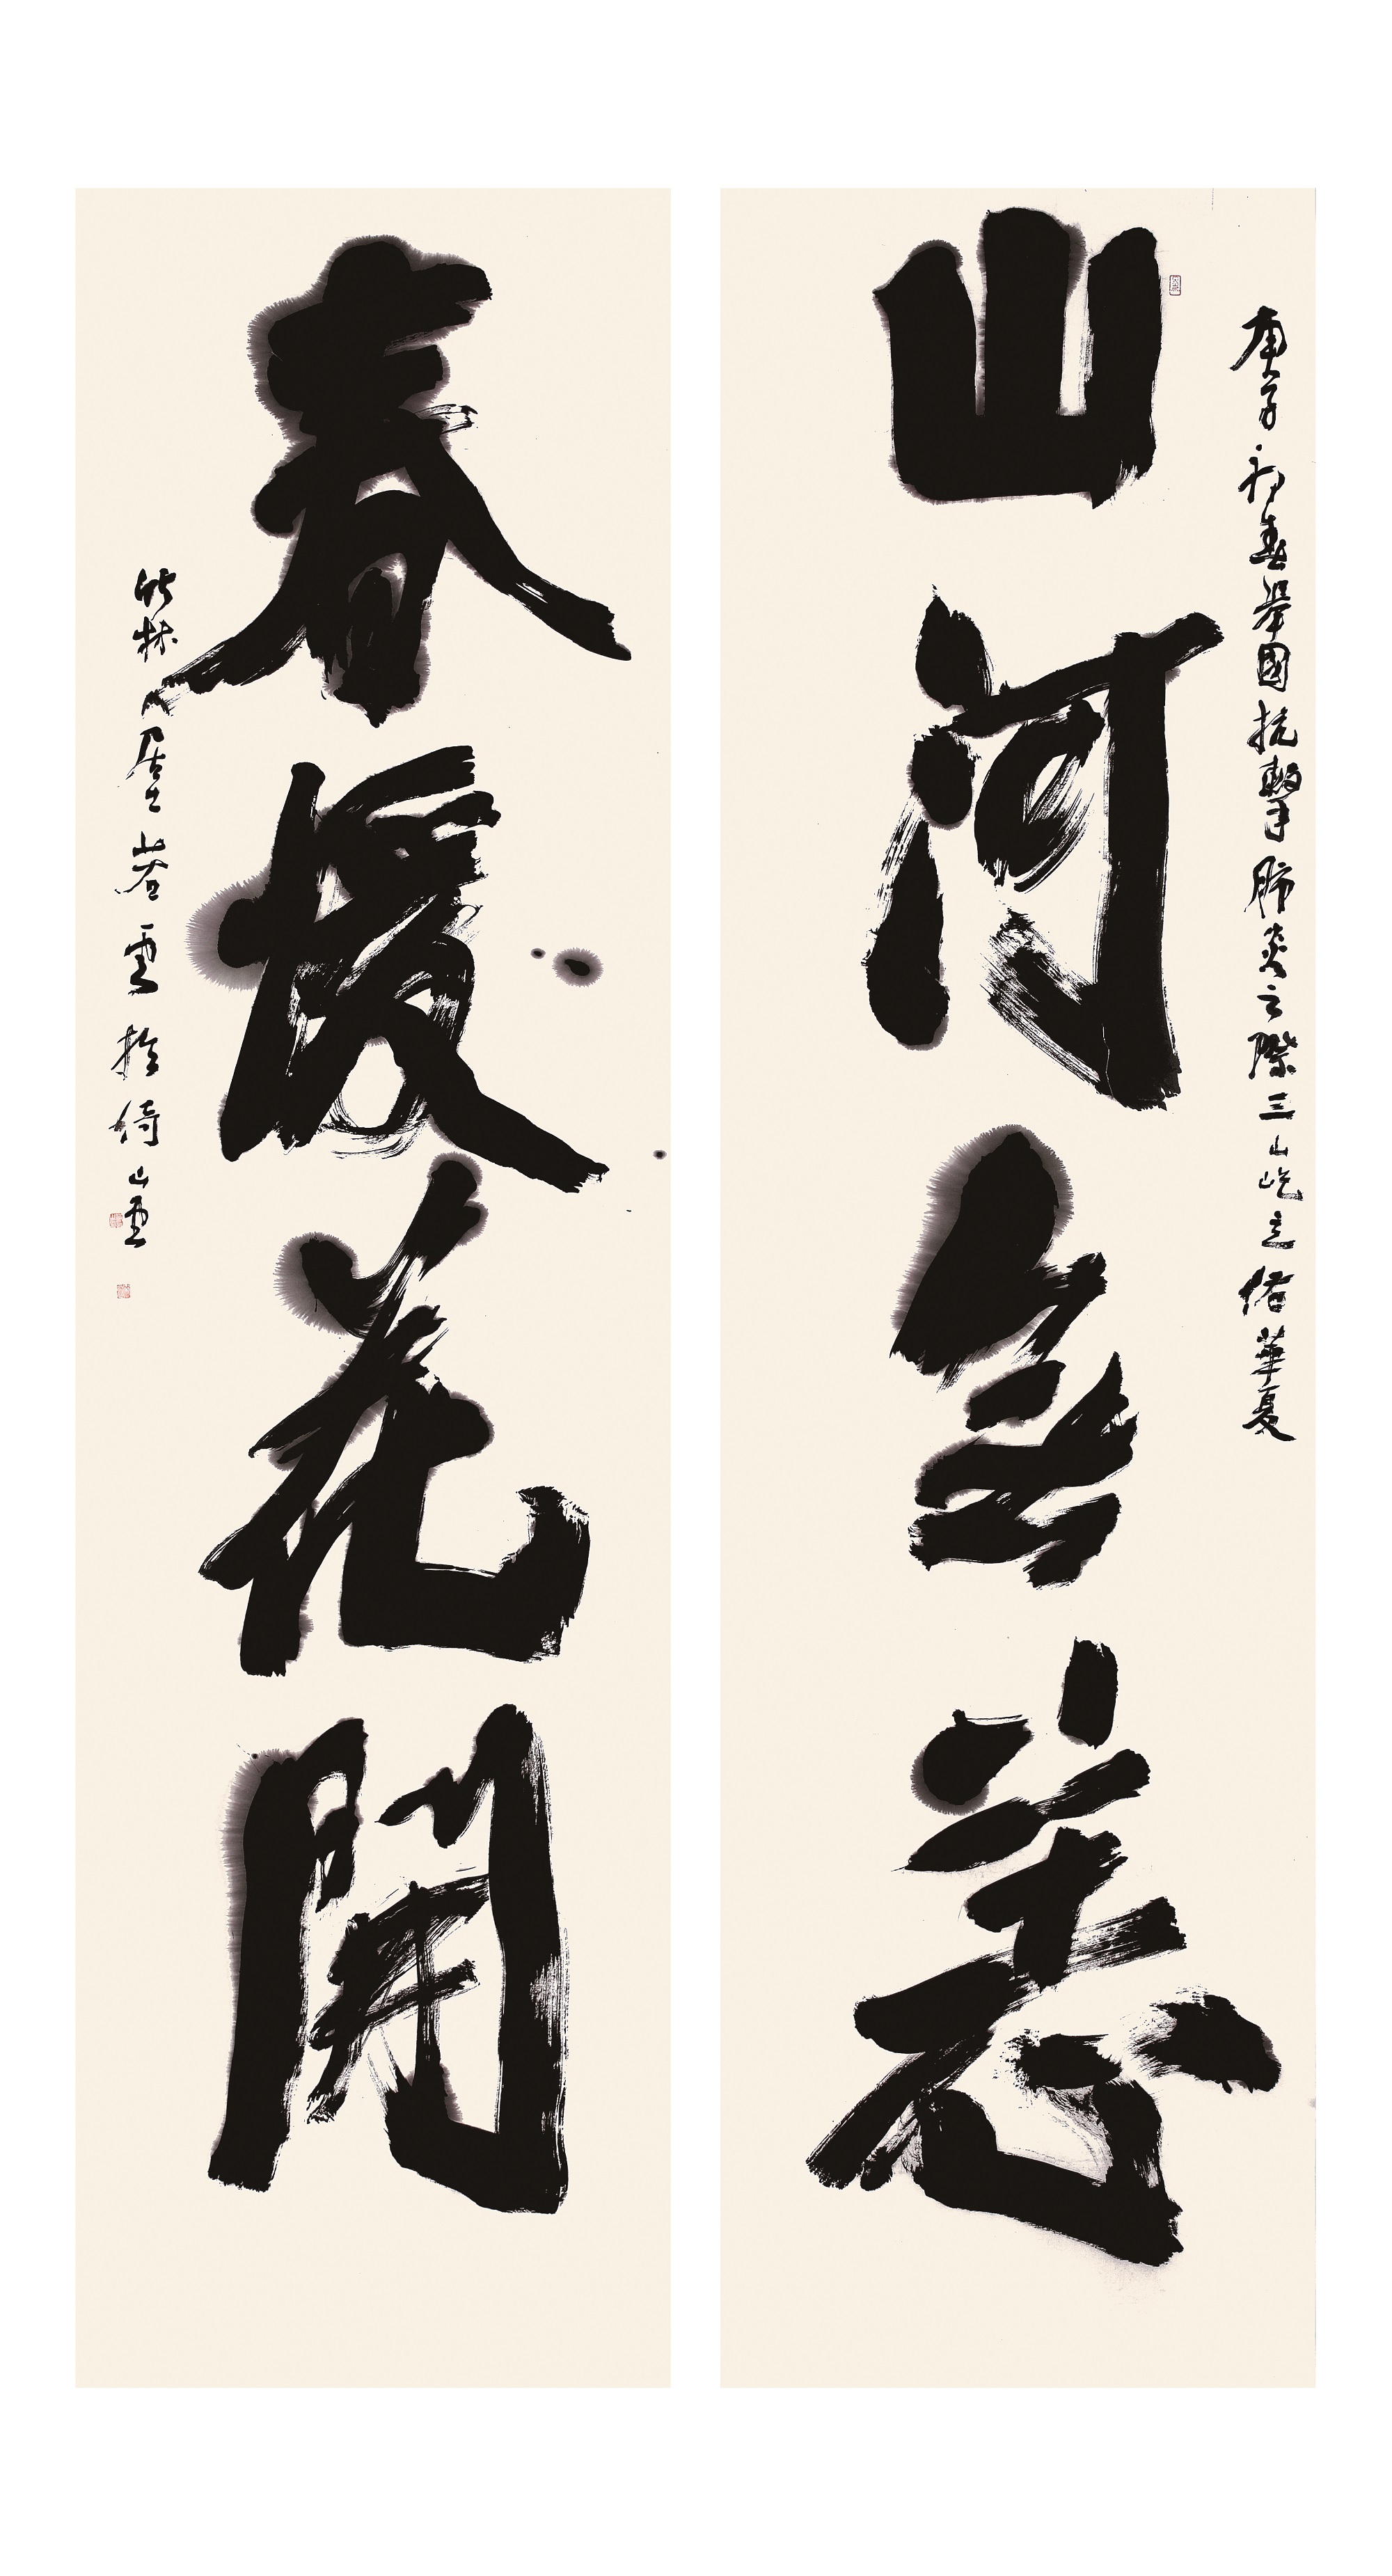 庚子初春舉國抗擊肺炎之際三山屹立佑華夏
山河無恙
春暖花開
竹林人居士岩雲於倚山雲